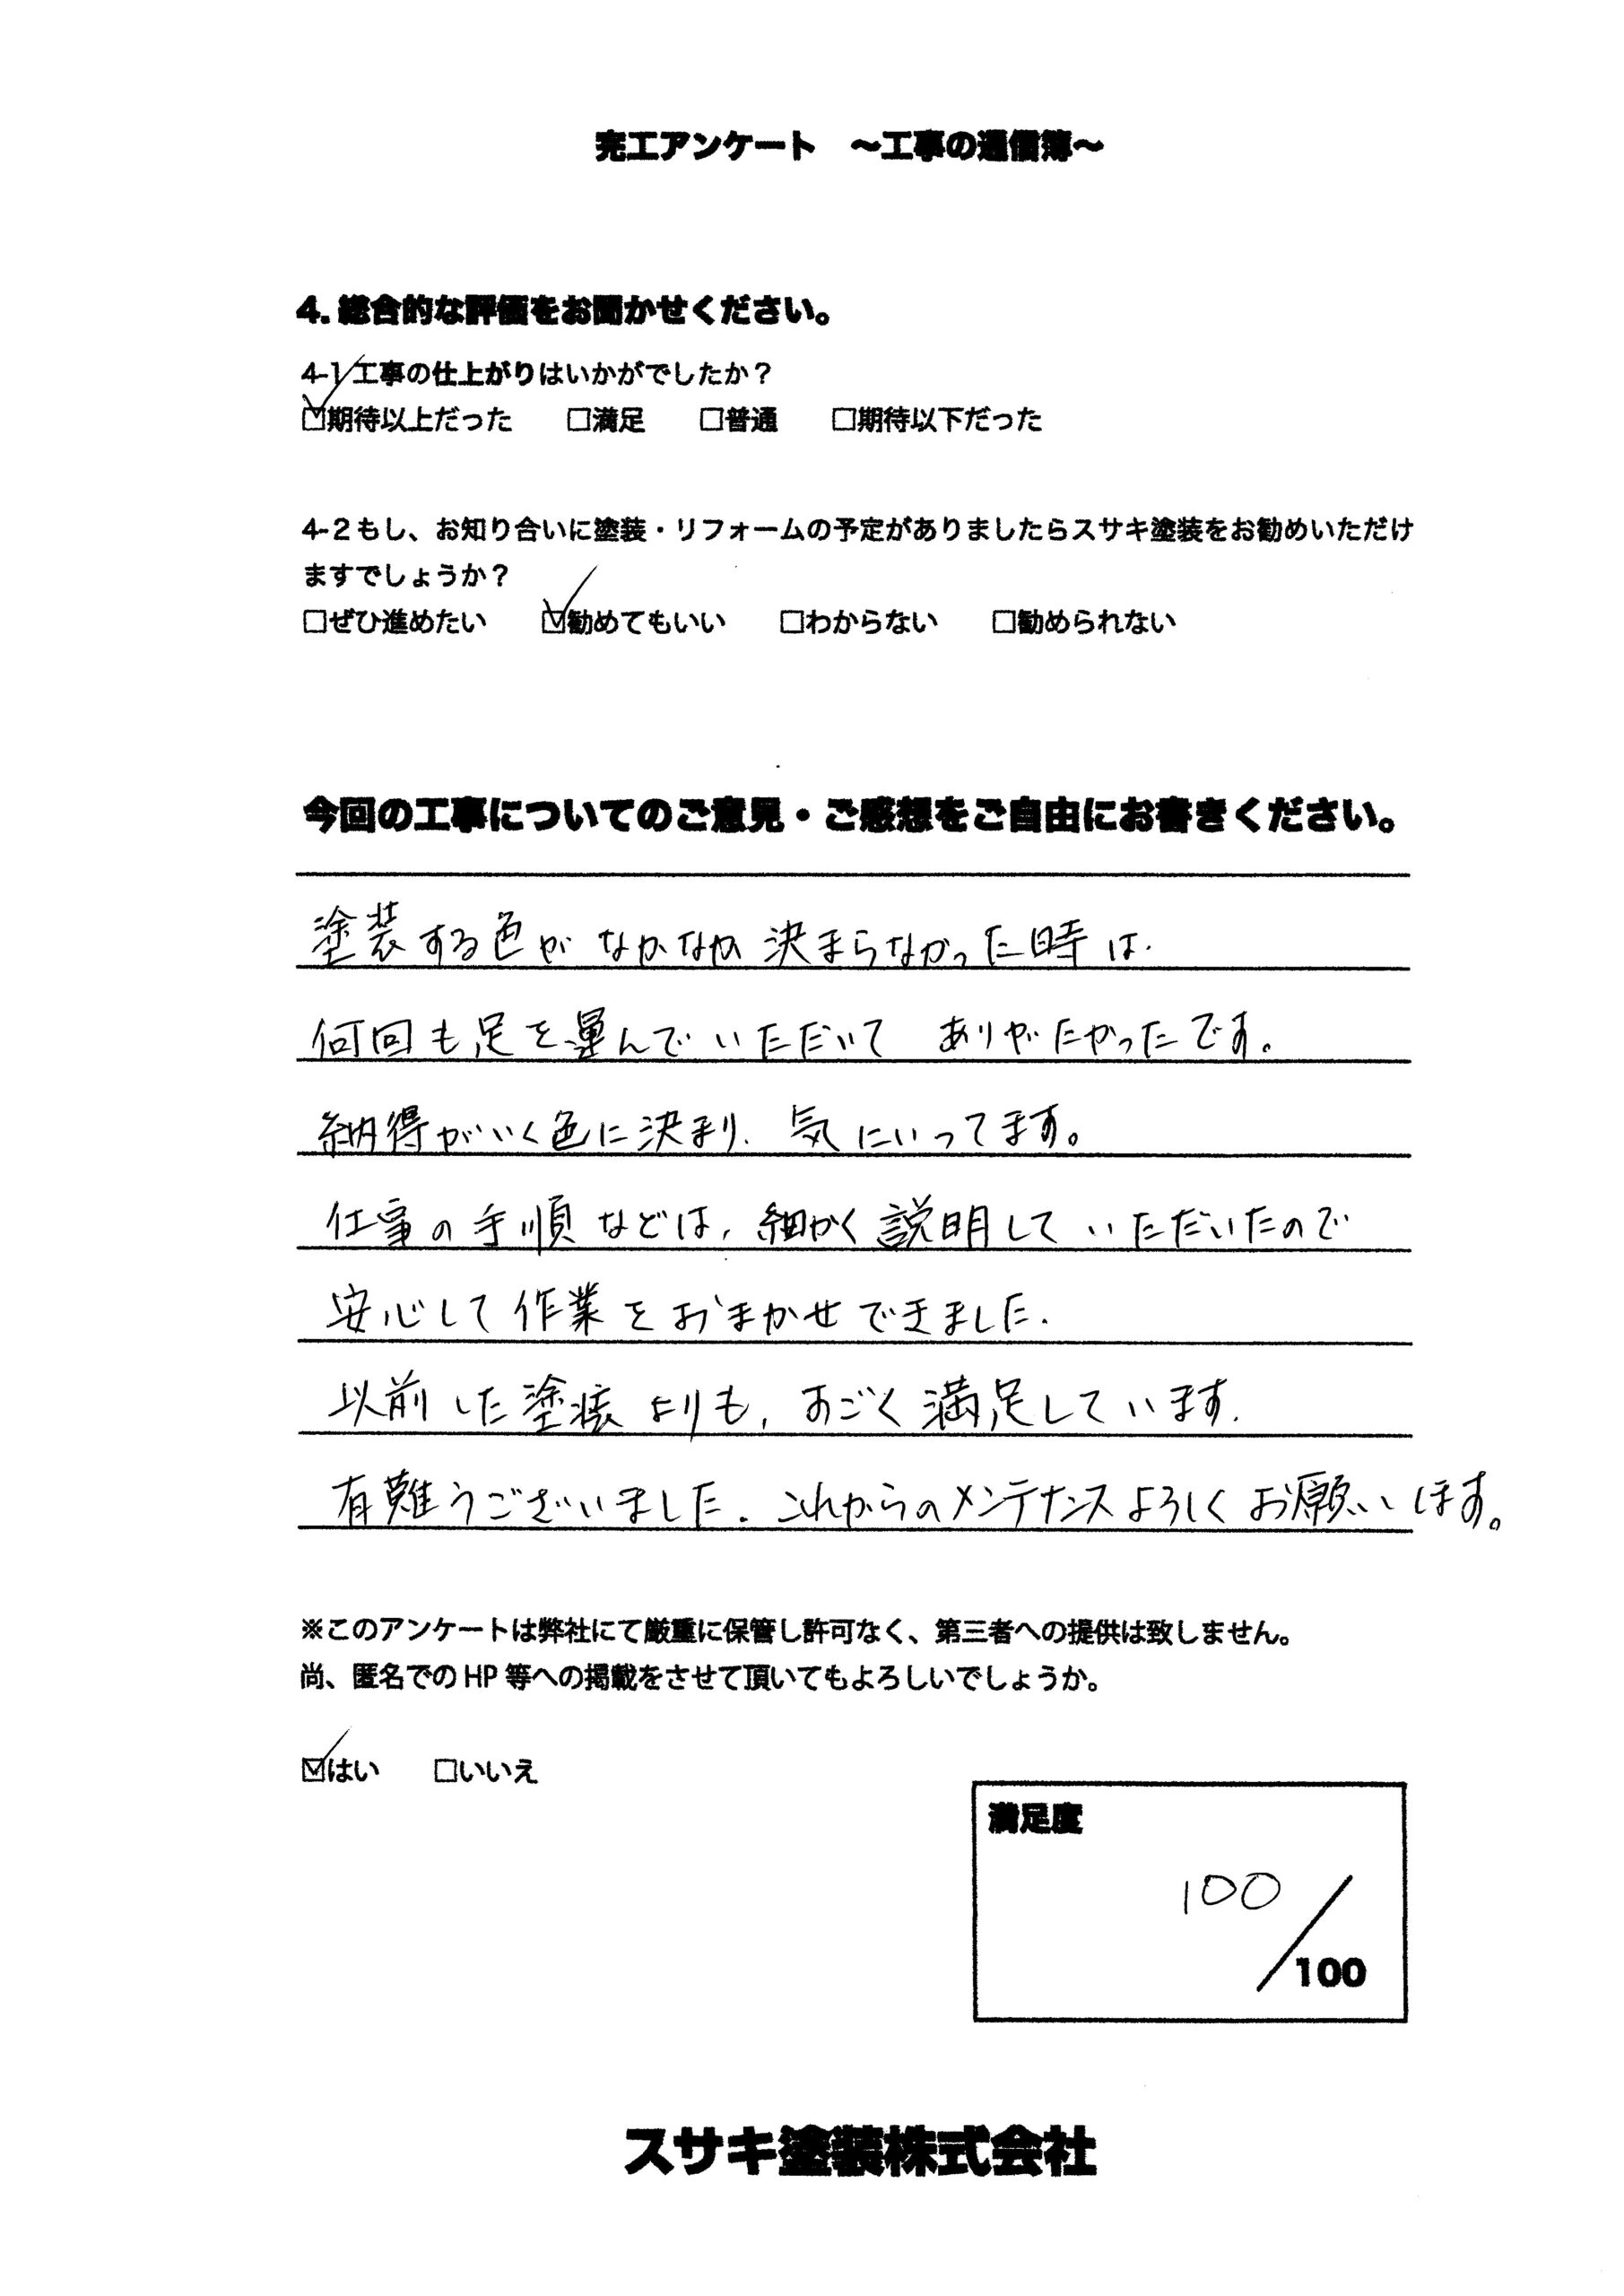 完工アンケート　～工事の通信簿～
4. 総合的な評価をお聞かせください。
4-1 工事の仕上がりはいかがでしたか？
☑期待以上だった　□満足　□普通　□期待以下だった
4-2 もし、お知り合いに塗装・リフォームの予定がありましたらスサキ塗装をお勧めいただけ
ますでしょうか？
□ぜひ進めたい　☑勧めてもいい　□わからない　□勧められない
今回の工事についてのご意見・ご感想をご自由にお書きください。
塗装する色が なかなか 決まらなかった時は、
何回も足を運んでいただいて ありがたかったです。
納得がいく色に決まり、気にいってます。
仕事の手順などは、細かく説明していただいたので
安心して作業をおまかせできました。
以前した塗装よりも、すごく満足しています。
有難うございました。これからのメンテナンスよろしくお願いします。
※このアンケートは弊社にて厳重に保管し許可なく、第三者への提供は致しません。
尚、匿名での HP 等への掲載をさせて頂いてもよろしいでしょうか。
☑はい　□いいえ
満足度
100
/100
スサキ塗装株式会社